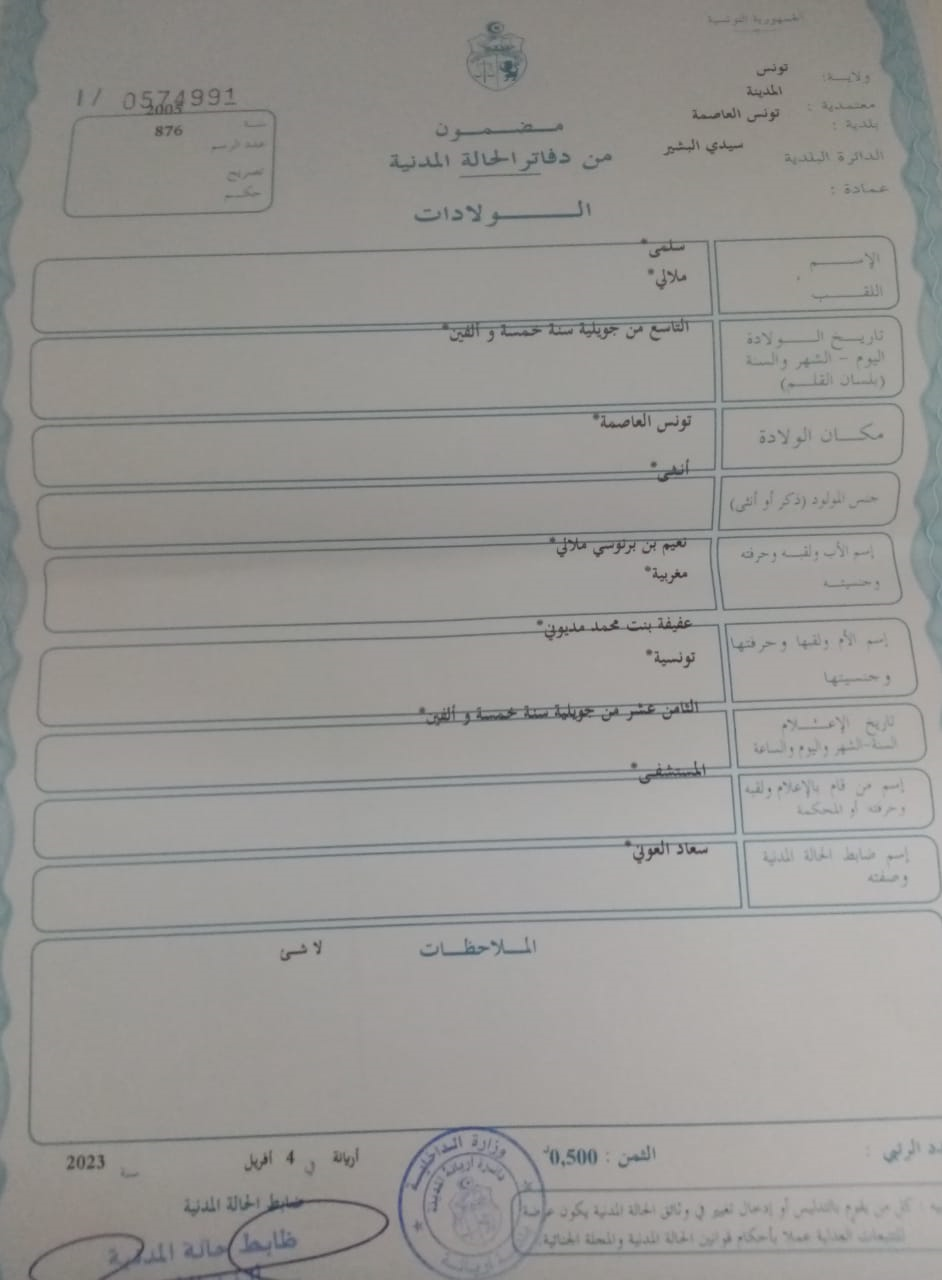 الجمهورية التونسية
ولاية: تونس
معتمدية : المدينة
بلدية : تونس العاصمة
الدائرة البلدية سيدي البشير
عمادة :
1/ 0574991
سنة 2005
عدد الرسم 876
تصريح
حكم
مضمون
من دفاتر الحالة المدنية
الولادات
الإسم سلمى*
اللقب ملالي*
تاريخ الولادة
اليوم - الشهر والسنة
(بلسان القلم)
التاسع من جويلية سنة خمسة و ألفين*
مكان الولادة تونس العاصمة*
جنس المولود (ذكر أو أنثى) أنثى*
إسم الأب ولقبه وحرفته
وجنسيته
نعيم بن برنوسي ملالي*
مغربية*
إسم الأم ولقبها وحرفتها
وجنسيتها
عفيفة بنت محمد مديوني*
تونسية*
تاريخ الإعلام
السنة-الشهر واليوم والساعة
الثامن عشر من جويلية سنة خمسة و ألفين*
إسم من قام بالإعلام ولقبه
وحرفته أو المحكمة
المستشفى*
إسم ضابط الحالة المدنية
وصفته
سعاد العوني*
الملاحظات
لا شئ
الرتبي :
الثمن : 0,500
أريانة في 4 أفريل سنة 2023
ضابط الحالة المدنية
ظابط حالة المدنية
وزارة الداخلية
دائرة أريانة المدينة
: كل من يقوم بالتدليس أو إدخال تغيير في وثائق الحالة المدنية يكون عرضة
للتتبعات العدلية عملا بأحكام قوانين الحالة المدنية والمجلة الجنائية